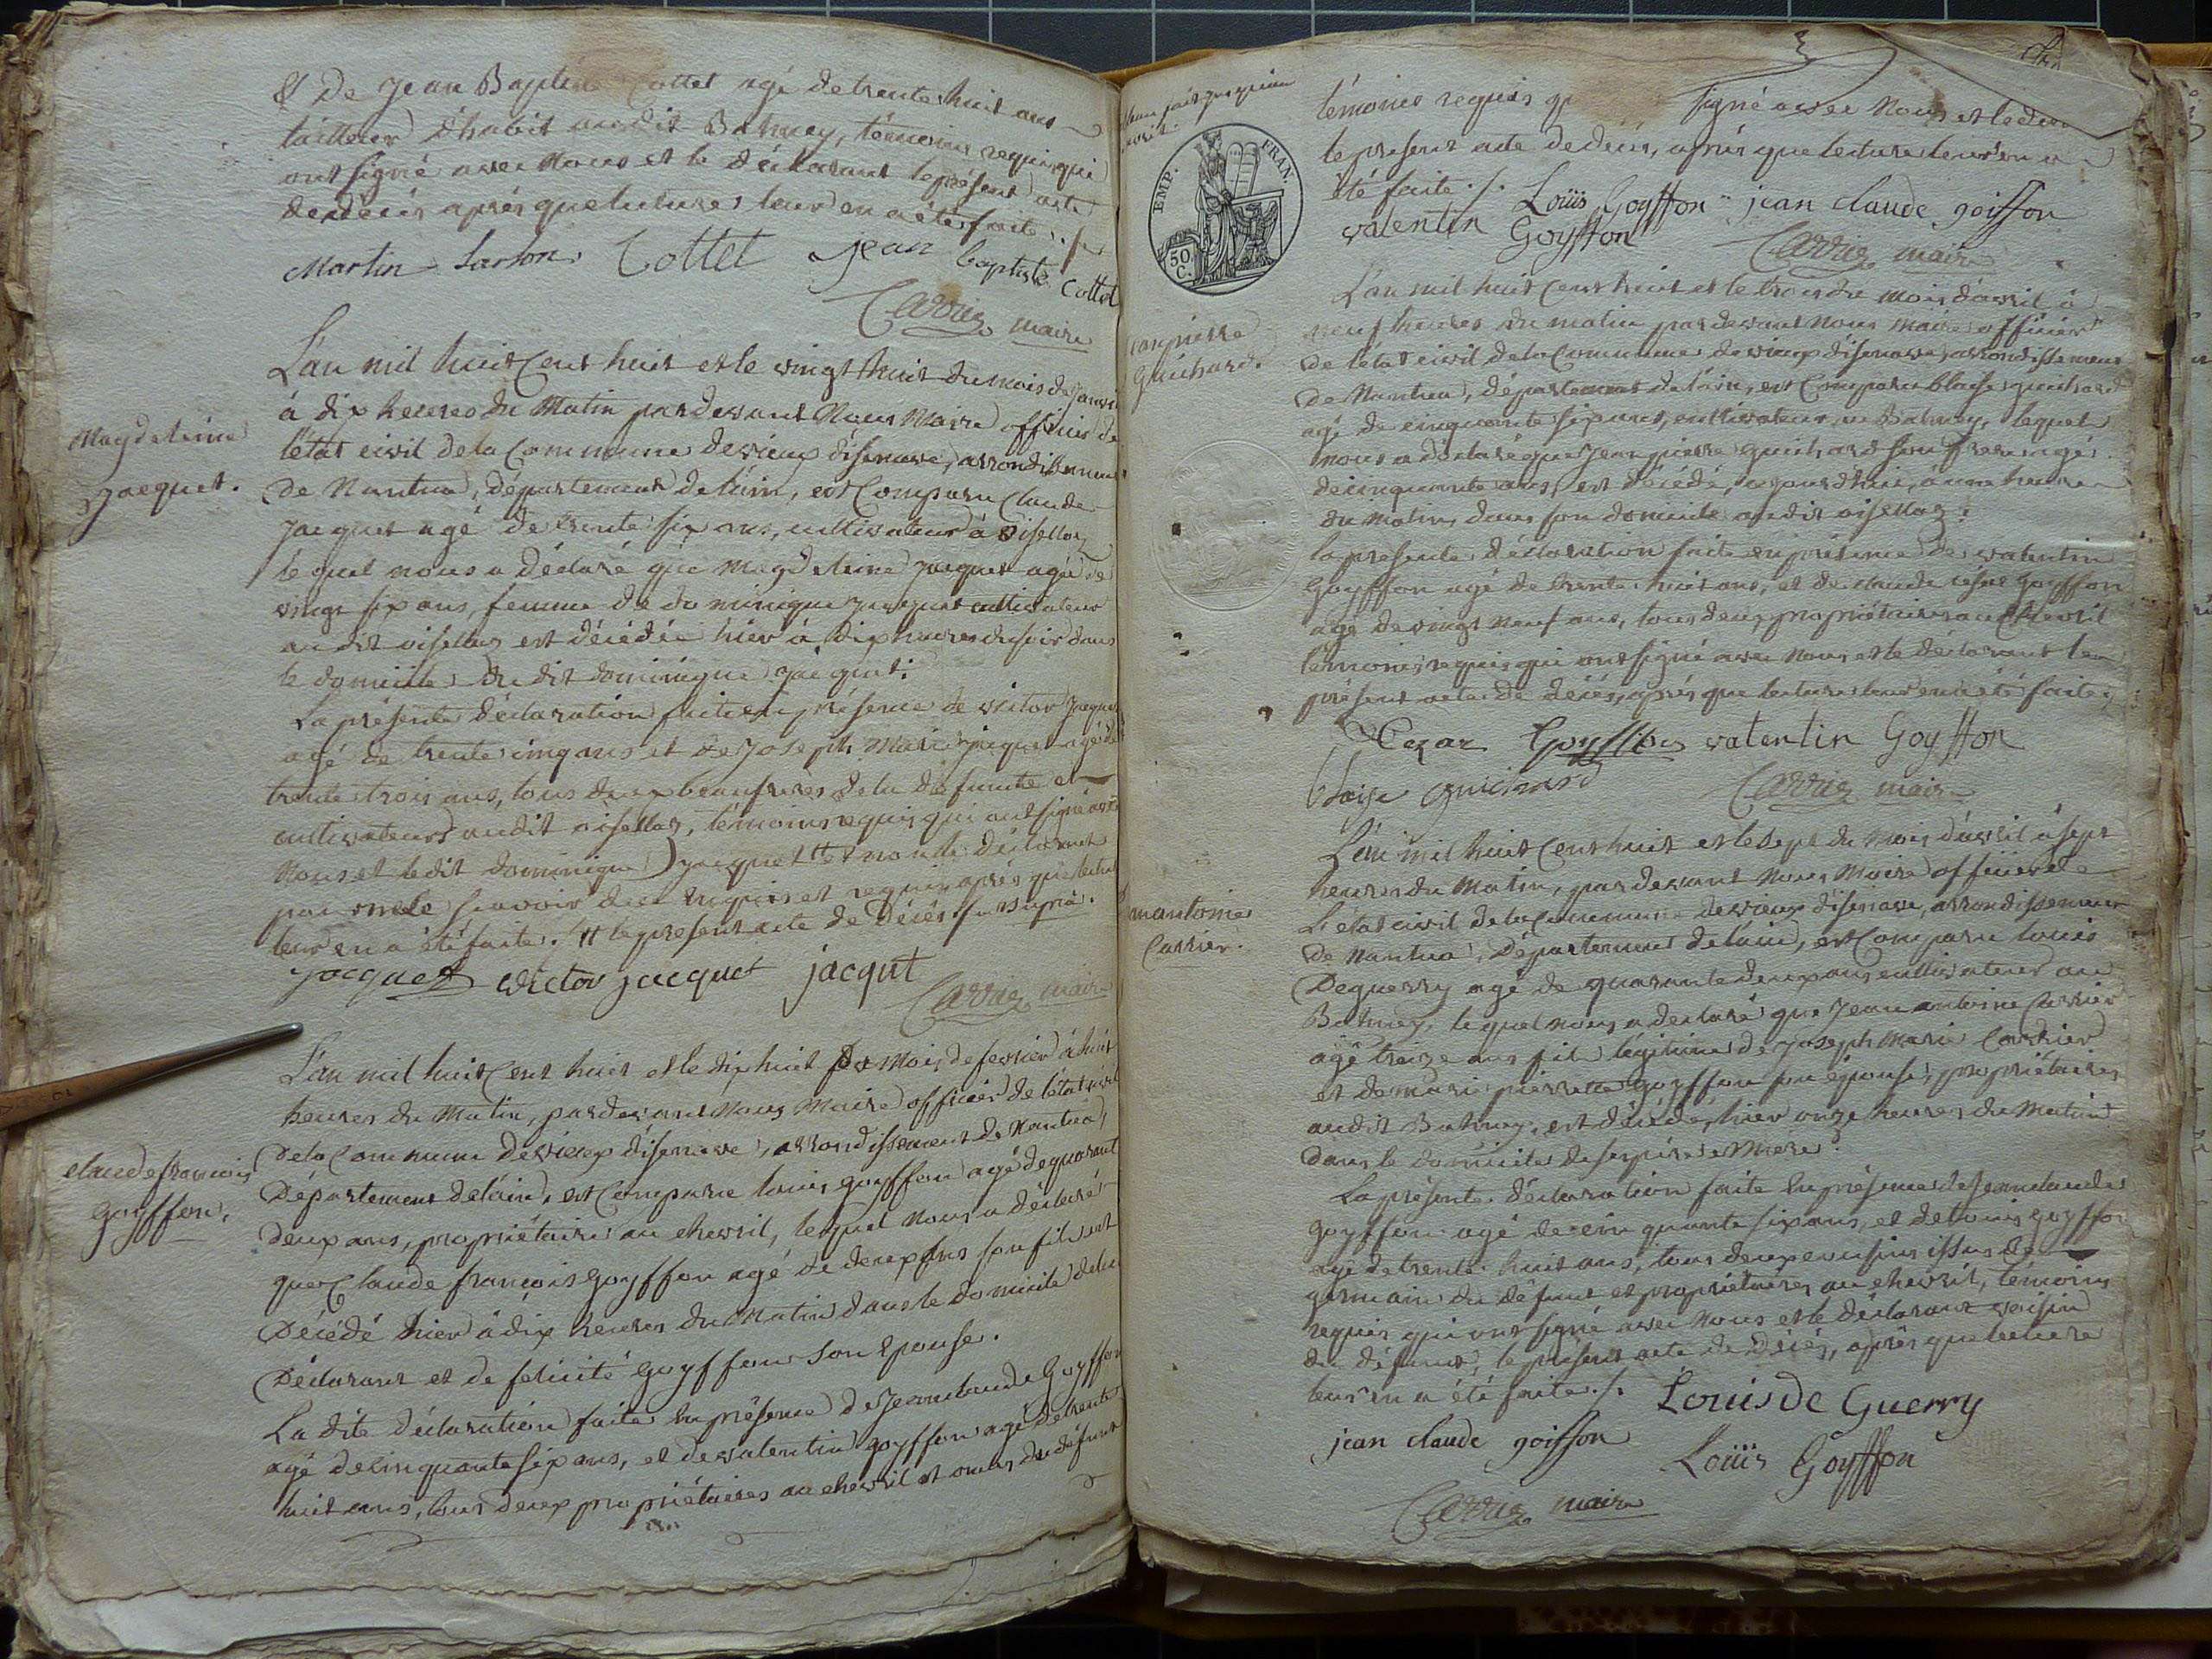 & De Jean Baptiste Cottet agé de trente huit ans
tailleur d'habit audit Balmey, témoins requis qui
ont signé avec Nous et le déclarant le présent acte
de décès après que lecture leur en a été faite ./.
Martin Larson Cottet Jean Baptiste Cottet
Carrier maire
L'an mil huit Cent huit et le vingt huit du mois de Janvier
à dix heures du Matin par devant Nous Maire officier de
l'état civil de la Commune de vieux d'isenave, arrondissement
Magdeleine
Jacquet.
De Nantua, département de l'ain, est Comparu Claude
Jacquet agé de trente six ans, cultivateur à Oisellaz
lequel nous a déclaré que Magdeleine Jacquet agée de
vingt six ans, femme de dominique Jacquet cultivateur
au dit oisellaz est décédée hier à dix heures du soir dans
le domicile du dit dominique Jacquet.
La présente déclaration faite en présence de victor Jacquet
agé de trente cinq ans et de Joseph Marie Jacquet agé de
trente trois ans, tous deux beaufreres de la défunte et
cultivateurs audit oisellaz, témoins requis qui ont signé avec
Nous et le dit dominique Jacquet # et non le déclarant
pour ne le scavoir de ce enquis et requis après que lecture
leur en a été faite ./. # le présent acte de décès
Jacquet victor jacquet jacqut
Carrier maire
L'an mil huit Cent huit et le dix huit du Mois de fevrier à huit
heures du Matin, par devant Nous Maire officier de l'état civil
De la Commune de vieux d'isenave, arrondissement de Nantua,
claude francois
Goyffon.
Département de l'ain, est Comparu louis goyffon agé de quarante
deux ans, propriétaire au chevril, lequel Nous a déclaré
que Claude francois Goyffon agé de deux ans son fils est
Décédé hier à dix heures du Matin dans le domicile de lui
Déclarant et de felicité Goyffon Son Epouse.
La dite déclaration faite en présence de Jean claude Goyffon
agé de cinquante six ans, et de valentin Goyffon agé de trente
huit ans, tous deux propriétaires au chevril et oncles du défunt
témoins requis signé avec Nous et le
le présent acte de décès, après que lecture leur en a
été faite ./. Loüis Goyffon jean claude goiffon
valentin Goyffon Carrier maire
EMP. FRAN.
50 C.
L'an mil huit Cent huit et le trois du Mois d'avril à
neuf heures du matin par devant Nous maire officier
Jean pierre
Guichard.
De l'état civil de la Commune de vieux d'isenave, arrondissement
De Nantua, département de l'ain, est Comparu blaise guichard
agé de cinquante six ans, cultivateur au Balmey, lequel
nous a déclaré que Jean pierre guichard son frere agé
de cinquante ans, est décédé, aujourd'hui, à une heure
du Matin, dans son domicile audit oisellaz.
la presente déclaration faite en présence de valentin
Goyffon agé de trente huit ans, et de claude césar Goyffon
agé de vingt neuf ans, tous deux propriétaires au Chevril
temoins requis qui ont signé avec Nous et le déclarant le
présent acte de décès, après que lecture leur en a été faite,
Cezar Goyffon valentin Goyffon
blaise Guichard Carrier maire
L'an mil huit Cent huit et le sept du Mois d'avril à sept
heures du Matin, par devant Nous Maire officier de
Jean antoine
Carrier.
L'état civil de la Commune de vieux d'isenave, arrondissement
De Nantua, Département de l'ain, est Comparu louis
Deguerry agé de quarante deux ans cultivateur au
Balmey, lequel nous a déclaré que Jean antoine Carrier
agé treize ans fils légitime de Joseph Marie Carrier
et de marie pierrette goyffon son épouse, propriétaires
audit Balmey, est décédé, hier onze heures du Matin
dans le domicile de ses père et Mere.
La présente déclaration faite en présence de Jean claude
goyffon agé de cinquante six ans, et de louis goyffon
agé de trente huit ans, tous deux cousins issus de
germain du défunt et propriétaires au chevril, témoins
requis qui ont signé avec Nous et le déclarant voisin
du défunt, le présent acte de Décès, après que lecture
leur en a été faite ./. Louis De Guerry
jean claude goiffon Loüis Goyffon
Carrier maire